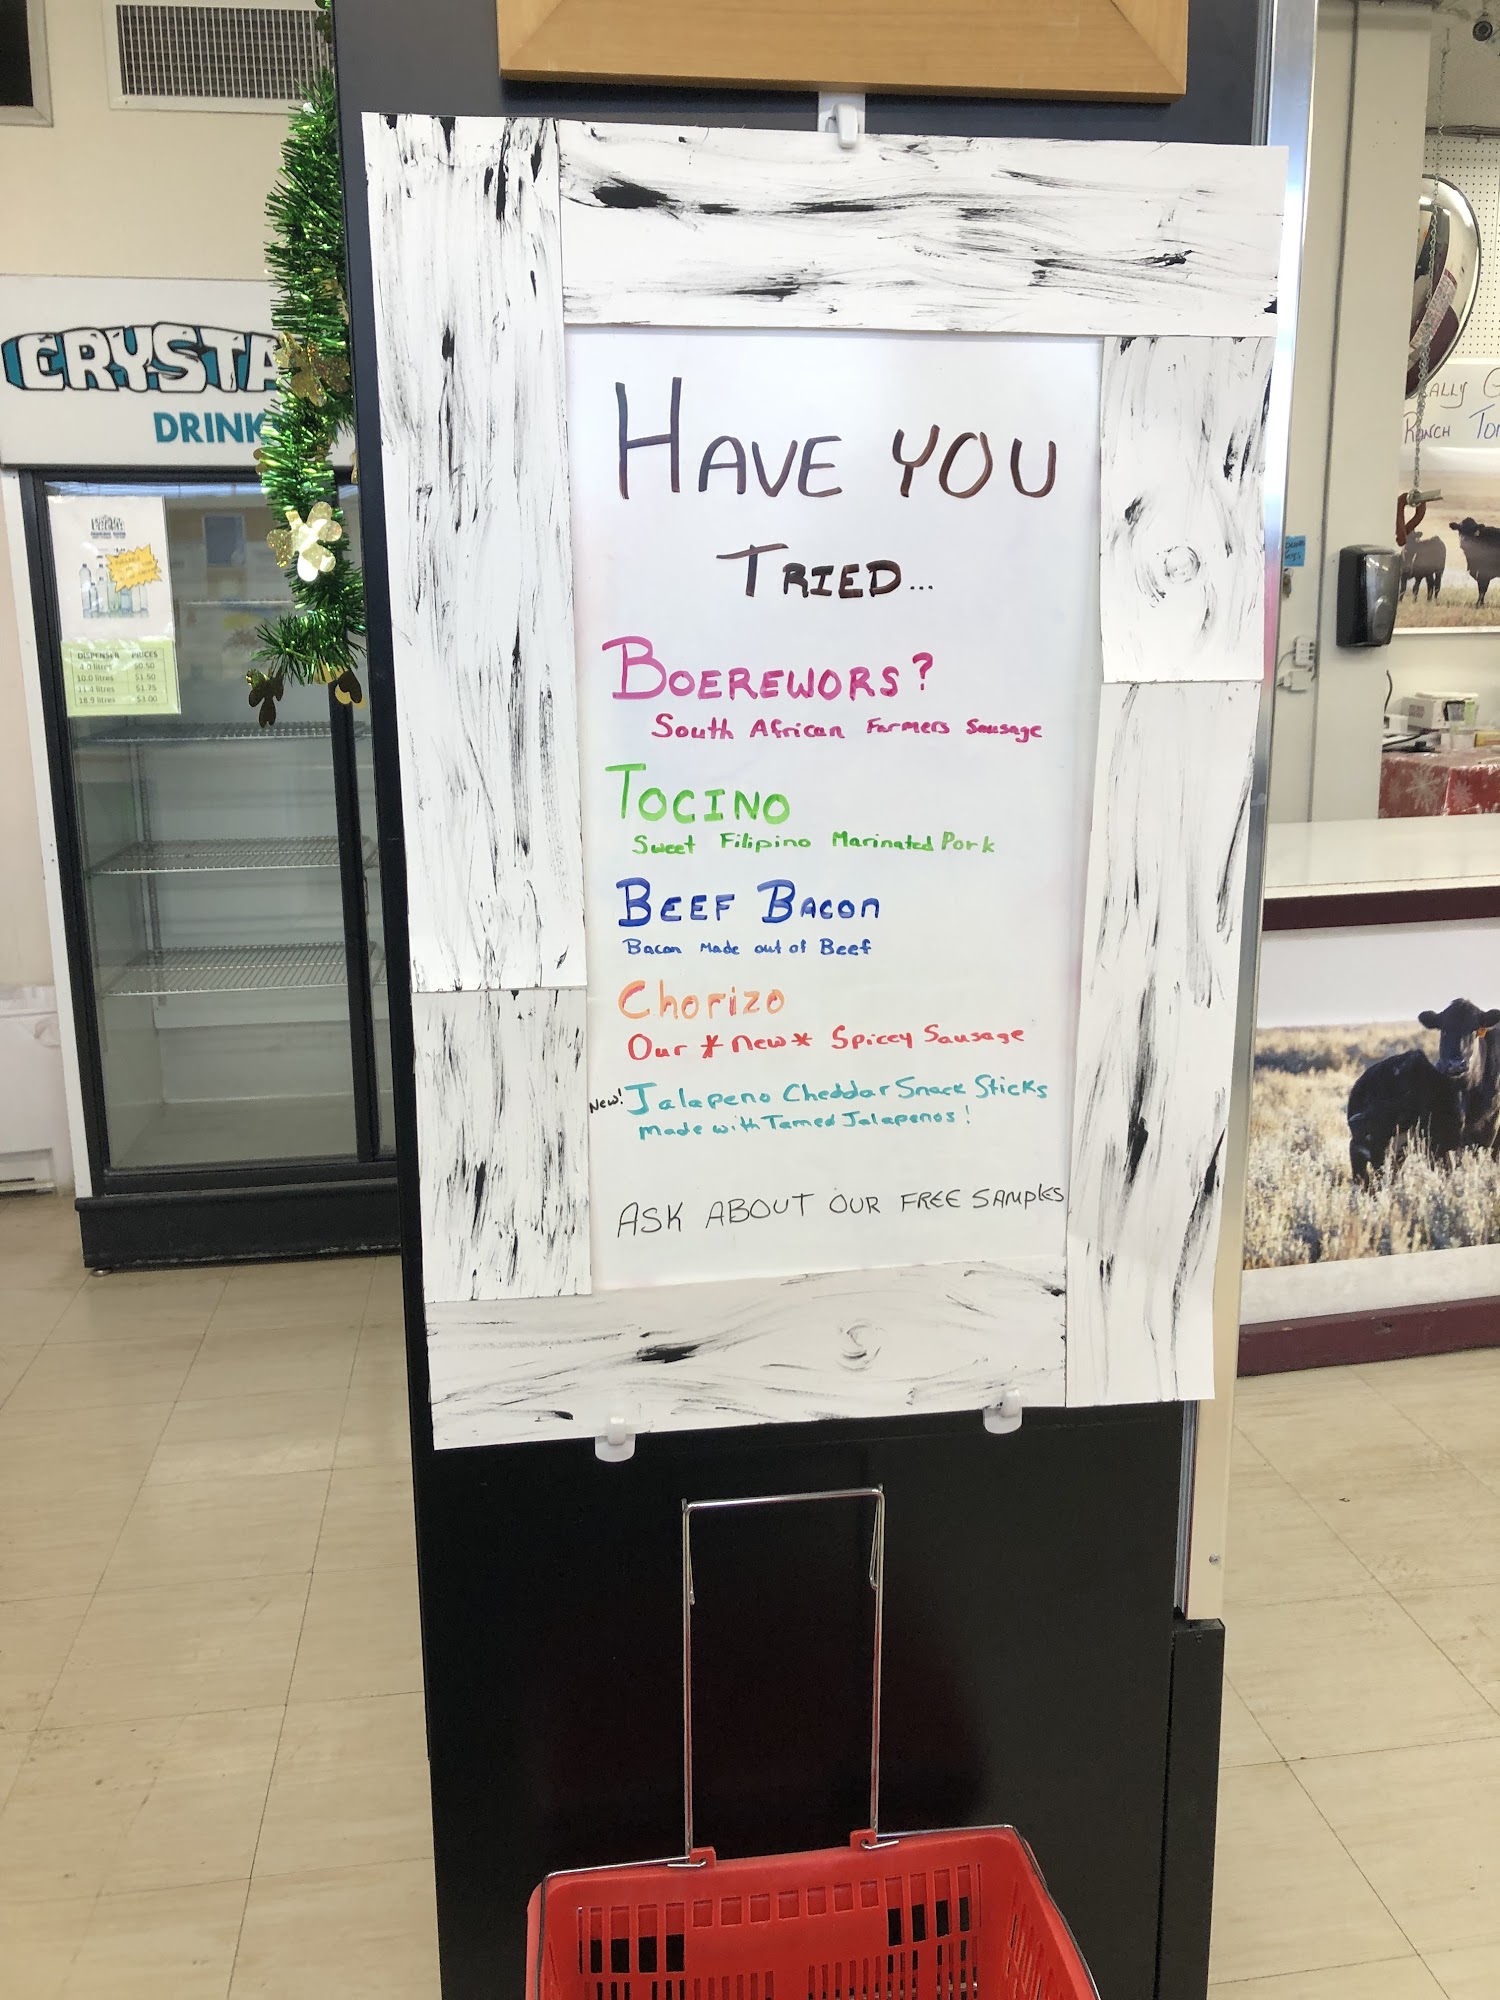 HAVE YOU
TRIED...
BOEREWORS?
South African Farmers Sausage
TOCINO
Sweet Filipino Marinated Pork
BEEF BACON
Bacon Made out of Beef
Chorizo
Our *New* Spicey Sausage
New! Jalapeno Cheddar Snack Sticks
made with Tamed Jalapenos!
ASK ABOUT OUR FREE SAMPLES
CRYSTA
DRINK
DISPENSER PRICES
4.0 litres $0.50
10.0 litres $1.50
11.4 litres $1.75
18.9 litres $3.00
RANCH